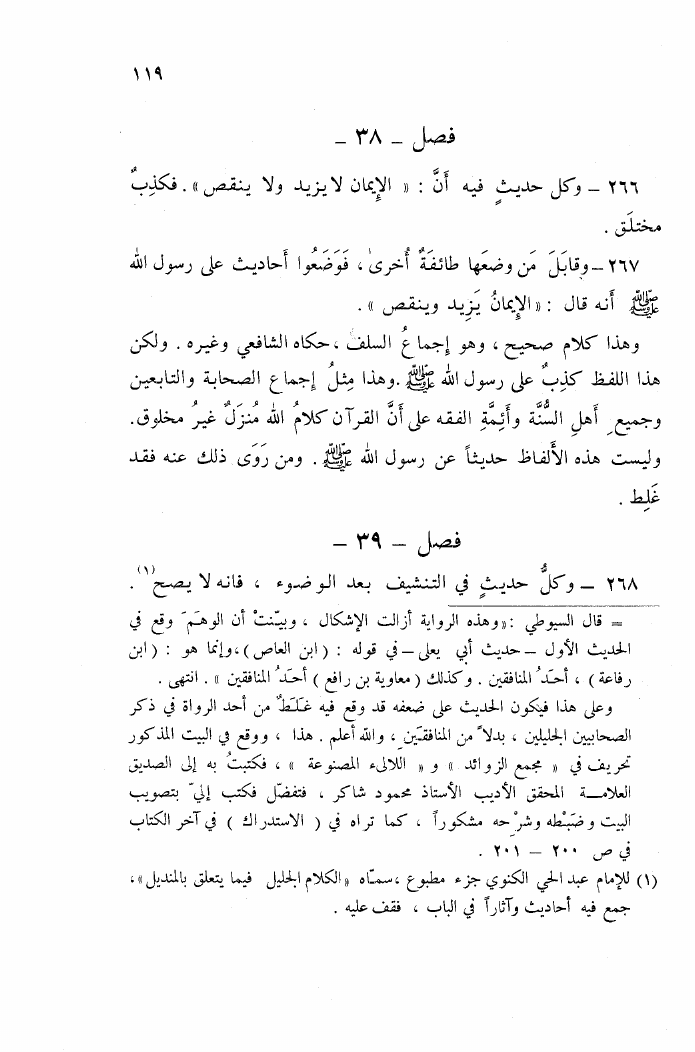 ١١٩
فصل - ٣٨ -
٢٦٦ - وكل حديثٍ فيه أَنَّ : « الإِيمان لا يزيد ولا ينقص » . فكذِبٌ
مختلَق .
٢٦٧ - وقابَلَ مَن وضعَها طائفَةٌ أُخرىٰ ، فَوَضَعُوا أَحاديث على رسول الله
ﷺ أَنه قال : « الإِيمانُ يَزِيد وينقص » .
وهذا كلام صحيح ، وهو إِجماعُ السلف ، حكاه الشافعي وغيره . ولكن
هذا اللفظ كذِبٌ على رسول الله ﷺ . وهذا مِثلُ إِجماع الصحابة والتابعين
وجميعِ أَهلِ السُّنَّة وأَئِمَّةِ الفقه على أَنَّ القرآن كلامُ الله مُنزَلٌ غيرُ مخلوق.
وليست هذه الأَلفاظ حديثاً عن رسول الله ﷺ . ومن رَوَى ذلك عنه فقد
غَلِط .
فصل - ٣٩ -
٢٦٨ - وكلُّ حديثٍ في التنشيف بعد الوضوء ، فانه لا يصح(١) .
= قال السيوطي : « وهذه الرواية أزالت الإشكال ، وبيّنتْ أن الوهَمَ وقع في
الحديث الأول - حديث أبي يعلى - في قوله : ( ابن العاص ) ، وإنما هو : ( ابن
رفاعة ) ، أحَدُ المنافقين . وكذلك ( معاوية بن رافع ) أحَدُ المنافقين » . انتهى .
وعلى هذا فيكون الحديث على ضعفه قد وقع فيه غَلَطٌ من أحد الرواة في ذكر
الصحابيين الجليلين ، بدلاً من المنافقَيْنِ ، والله أعلم . هذا ، ووقع في البيت المذكور
تحريف في « مجمع الزوائد » و « اللالىء المصنوعة » ، فكتبتُ به إلى الصديق
العلامـة المحقق الأديب الأستاذ محمود شاكر ، فتفضّل فكتب إليّ بتصويب
البيت وضَبْطه وشرْحه مشكوراً ، كما تراه في ( الاستدراك ) في آخر الكتاب
في ص ٢٠٠ - ٢٠١ .
(١) للإمام عبد الحي الكنوي جزء مطبوع ، سمّاه « الكلام الجليل فيما يتعلق بالمنديل » ،
جمع فيه أحاديث وآثاراً في الباب ، فقف عليه .